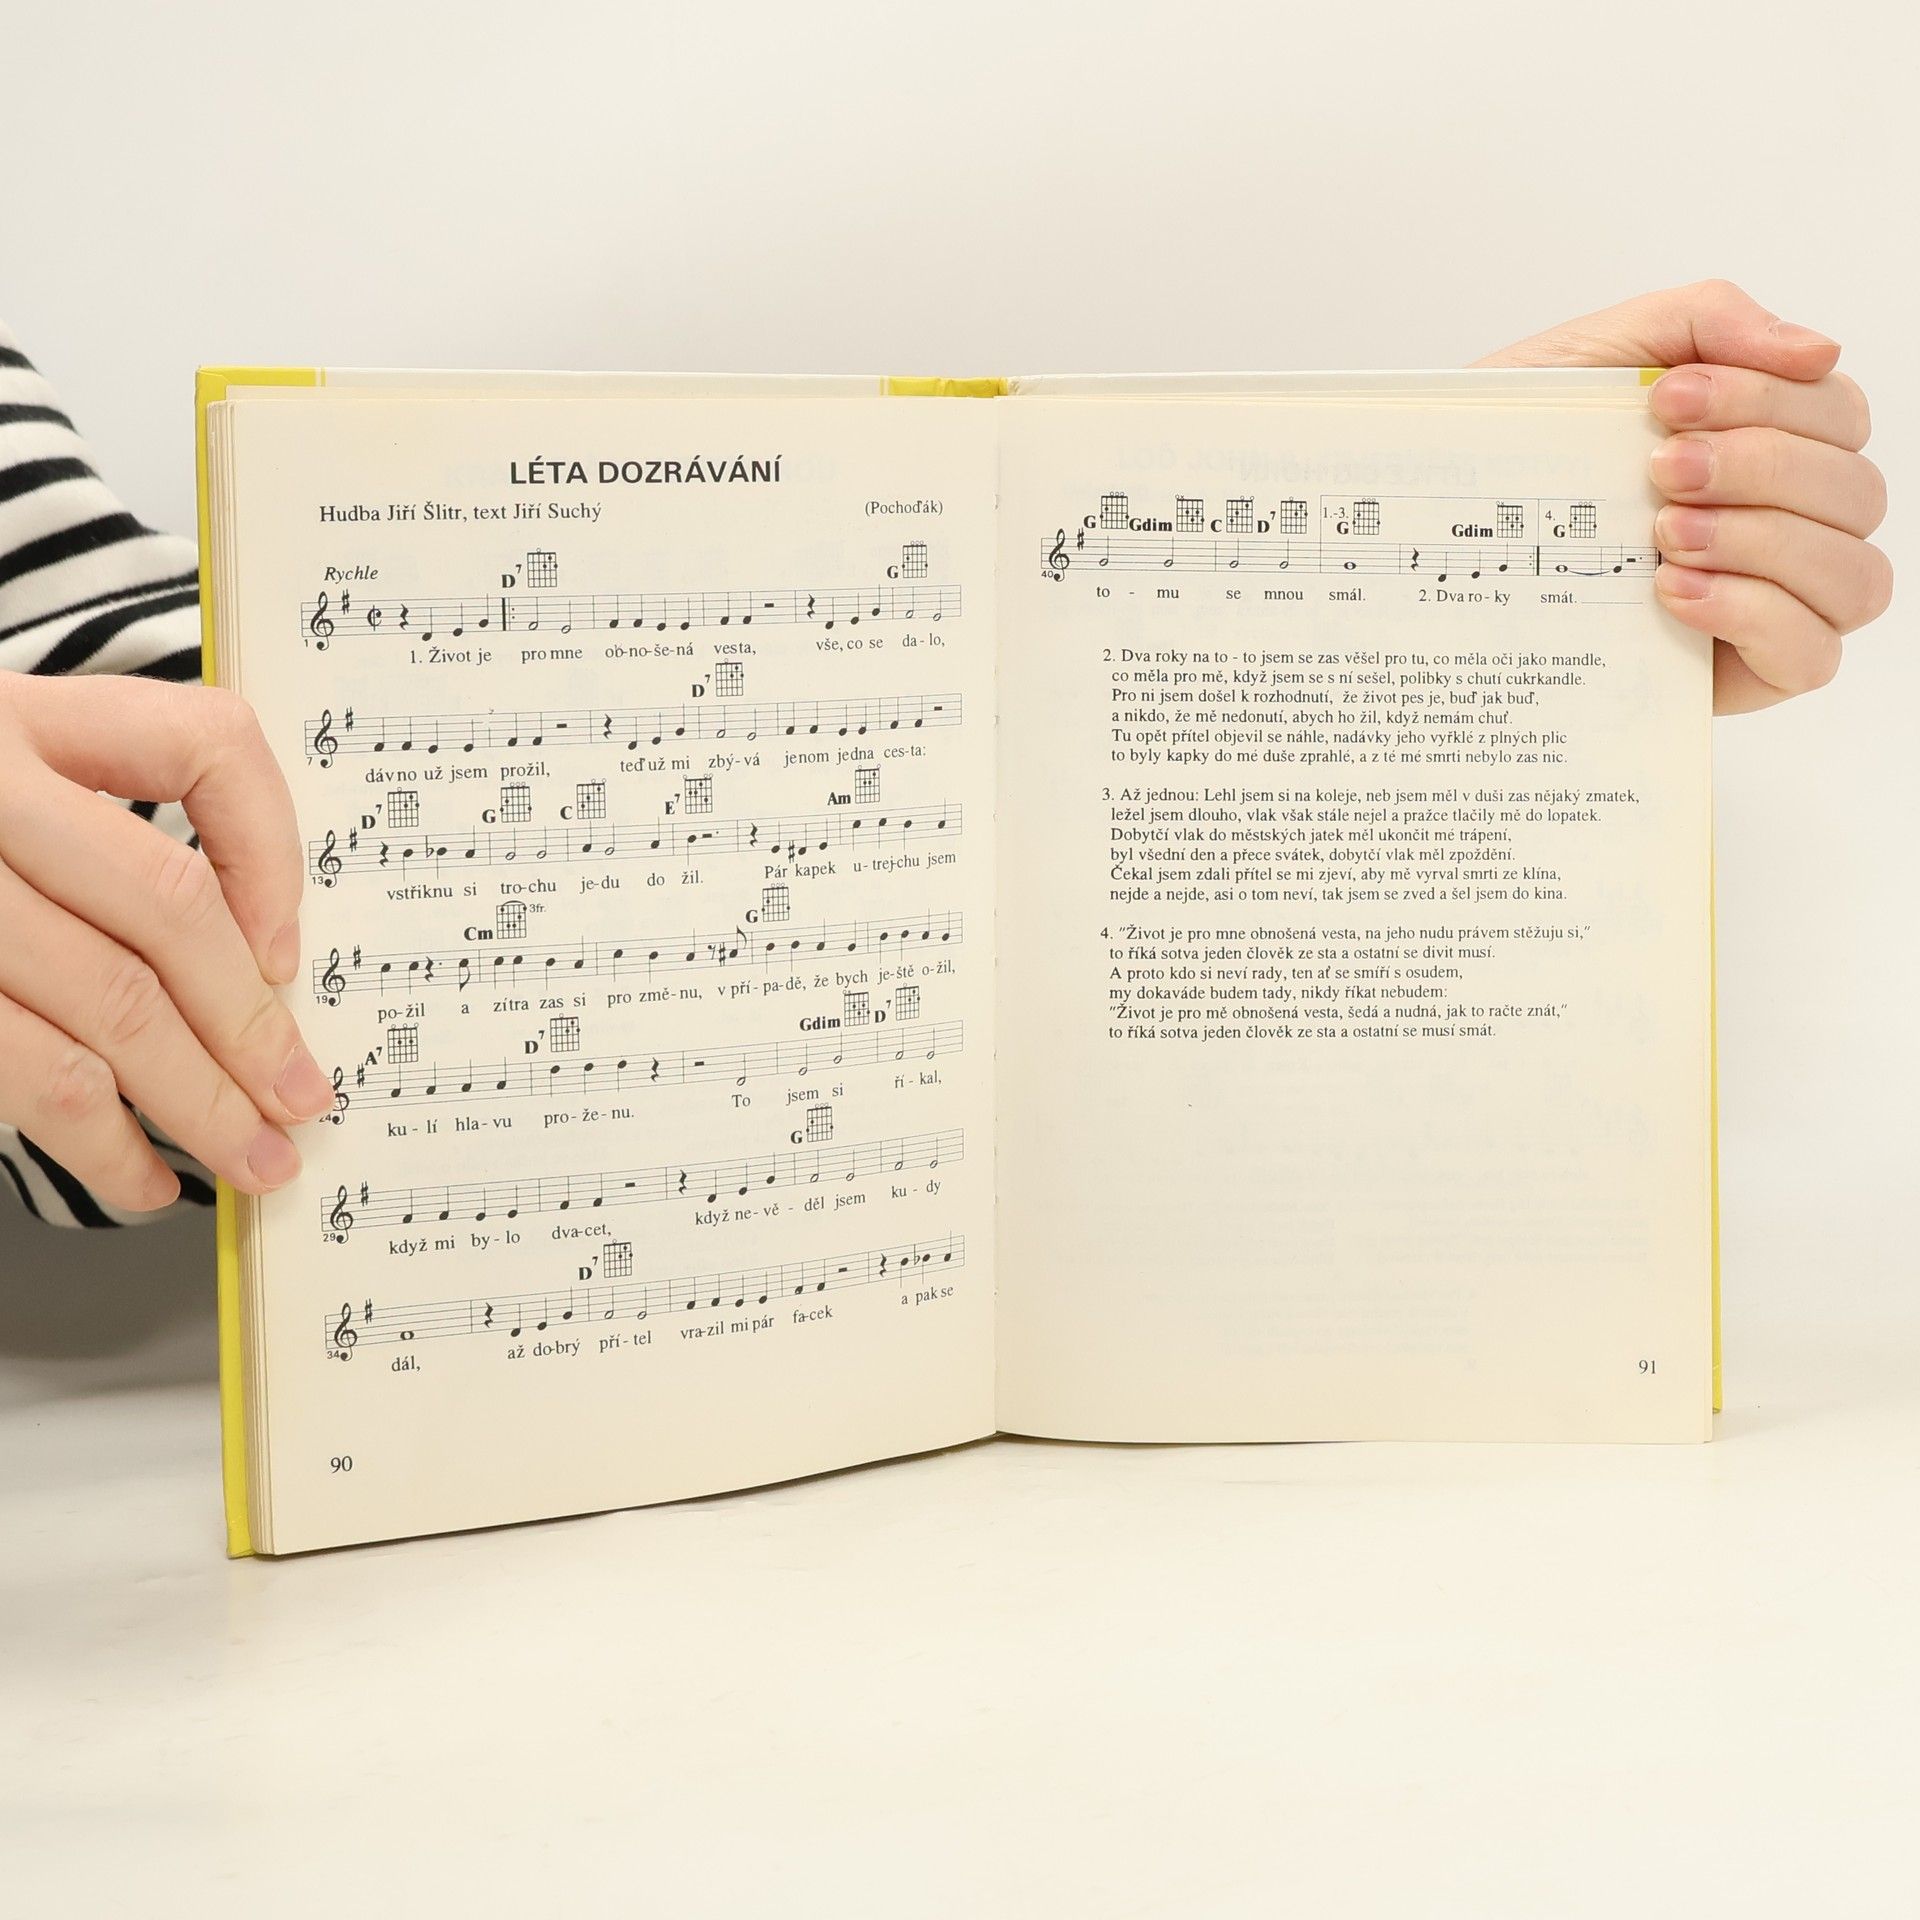 LÉTA DOZRÁVÁNÍ
Hudba Jiří Šlitr, text Jiří Suchý
(Pochoďák)
Rychle
D7 G
1
1. Život je pro mne ob-no-še-ná vesta, vše, co se da-lo,
D7
7
dávno už jsem prožil, teď už mi zbý-vá jenom jedna ces-ta:
D7 G C E7 Am
13
vstříknu si tro-chu je-du do žil. Pár kapek u-trej-chu jsem
Cm 3fr. G
19
po-žil a zítra zas si pro změ-nu, v pří-pa-dě, že bych je-ště o-žil,
A7 D7 Gdim D7
24
ku-lí hla-vu pro-že-nu. To jsem si ří-kal,
G
29
když mi by-lo dva-cet, když ne-vě-děl jsem ku-dy
D7
34
dál, až do-brý pří-tel vra-zil mi pár fa-cek a pak se
90
G Gdim C D7 1.-3. G Gdim 4. G
40
to - mu se mnou smál. 2. Dva ro-ky smát.
2. Dva roky na to - to jsem se zas věšel pro tu, co měla oči jako mandle,
co měla pro mě, když jsem se s ní sešel, polibky s chutí cukrkandle.
Pro ni jsem došel k rozhodnutí, že život pes je, buď jak buď,
a nikdo, že mě nedonutí, abych ho žil, když nemám chuť.
Tu opět přítel objevil se náhle, nadávky jeho vyřklé z plných plic
to byly kapky do mé duše zprahlé, a z té mé smrti nebylo zas nic.
3. Až jednou: Lehl jsem si na koleje, neb jsem měl v duši zas nějaký zmatek,
ležel jsem dlouho, vlak však stále nejel a pražce tlačily mě do lopatek.
Dobytčí vlak do městských jatek měl ukončit mé trápení,
byl všední den a přece svátek, dobytčí vlak měl zpoždění.
Čekal jsem zdali přítel se mi zjeví, aby mě vyrval smrti ze klína,
nejde a nejde, asi o tom neví, tak jsem se zved a šel jsem do kina.
4. "Život je pro mne obnošená vesta, na jeho nudu právem stěžuju si,"
to říká sotva jeden člověk ze sta a ostatní se divit musí.
A proto kdo si neví rady, ten ať se smíří s osudem,
my dokaváde budem tady, nikdy říkat nebudem:
"Život je pro mě obnošená vesta, šedá a nudná, jak to račte znát,"
to říká sotva jeden člověk ze sta a ostatní se musí smát.
91